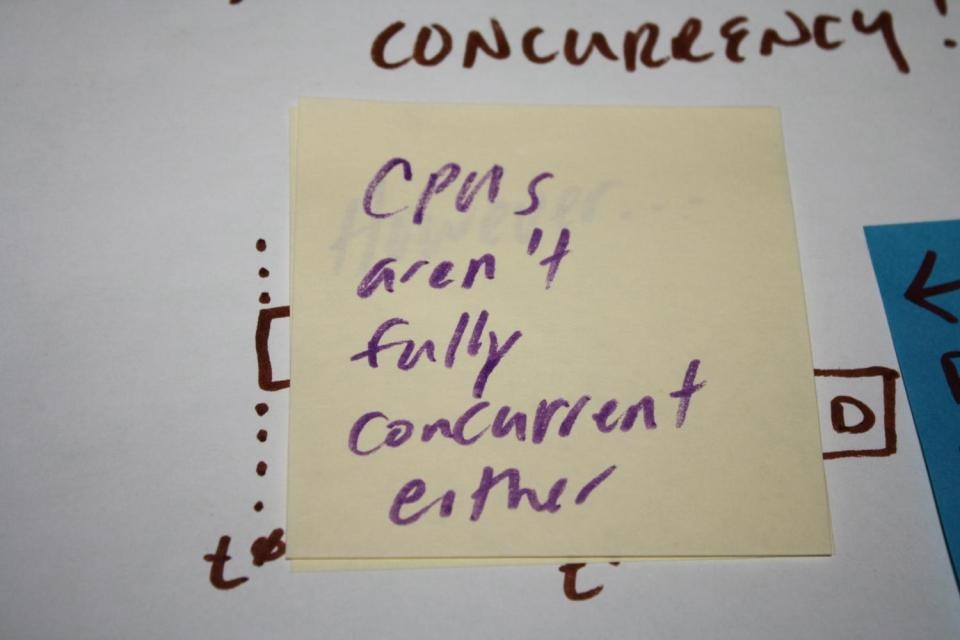 CONCURRENCY!
CPUs
aren't
fully
concurrent
either
However...
D
t0
t